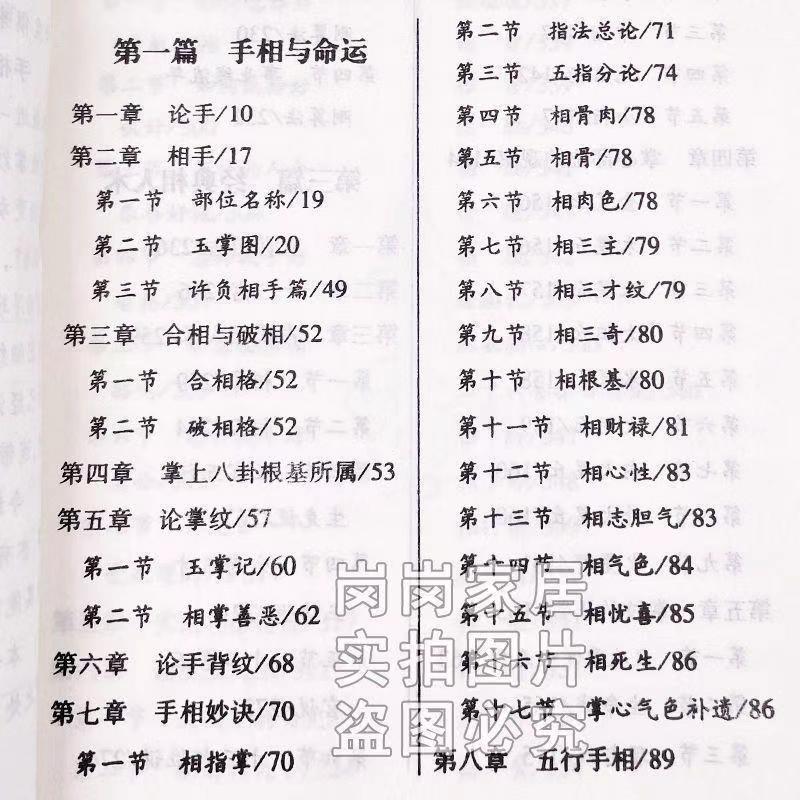 第一篇 手相与命运
第一章 论手/10
第二章 相手/17
第一节 部位名称/19
第二节 玉掌图/20
第三节 许负相手篇/49
第三章 合相与破相/52
第一节 合相格/52
第二节 破相格/52
第四章 掌上八卦根基所属/53
第五章 论掌纹/57
第一节 玉掌记/60
第二节 相掌善恶/62
第六章 论手背纹/68
第七章 手相妙诀/70
第一节 相指掌/70
第二节 指法总论/71
第三节 五指分论/74
第四节 相骨肉/78
第五节 相骨/78
第六节 相肉色/78
第七节 相三主/79
第八节 相三才纹/79
第九节 相三奇/80
第十节 相根基/80
第十一节 相财禄/81
第十二节 相心性/83
第十三节 相志胆气/83
第十四节 相气色/84
第十五节 相忧喜/85
第十六节 相死生/86
第十七节 掌心气色补遗/86
第八章 五行手相/89
岗岗家居
实拍图片
盗图必究